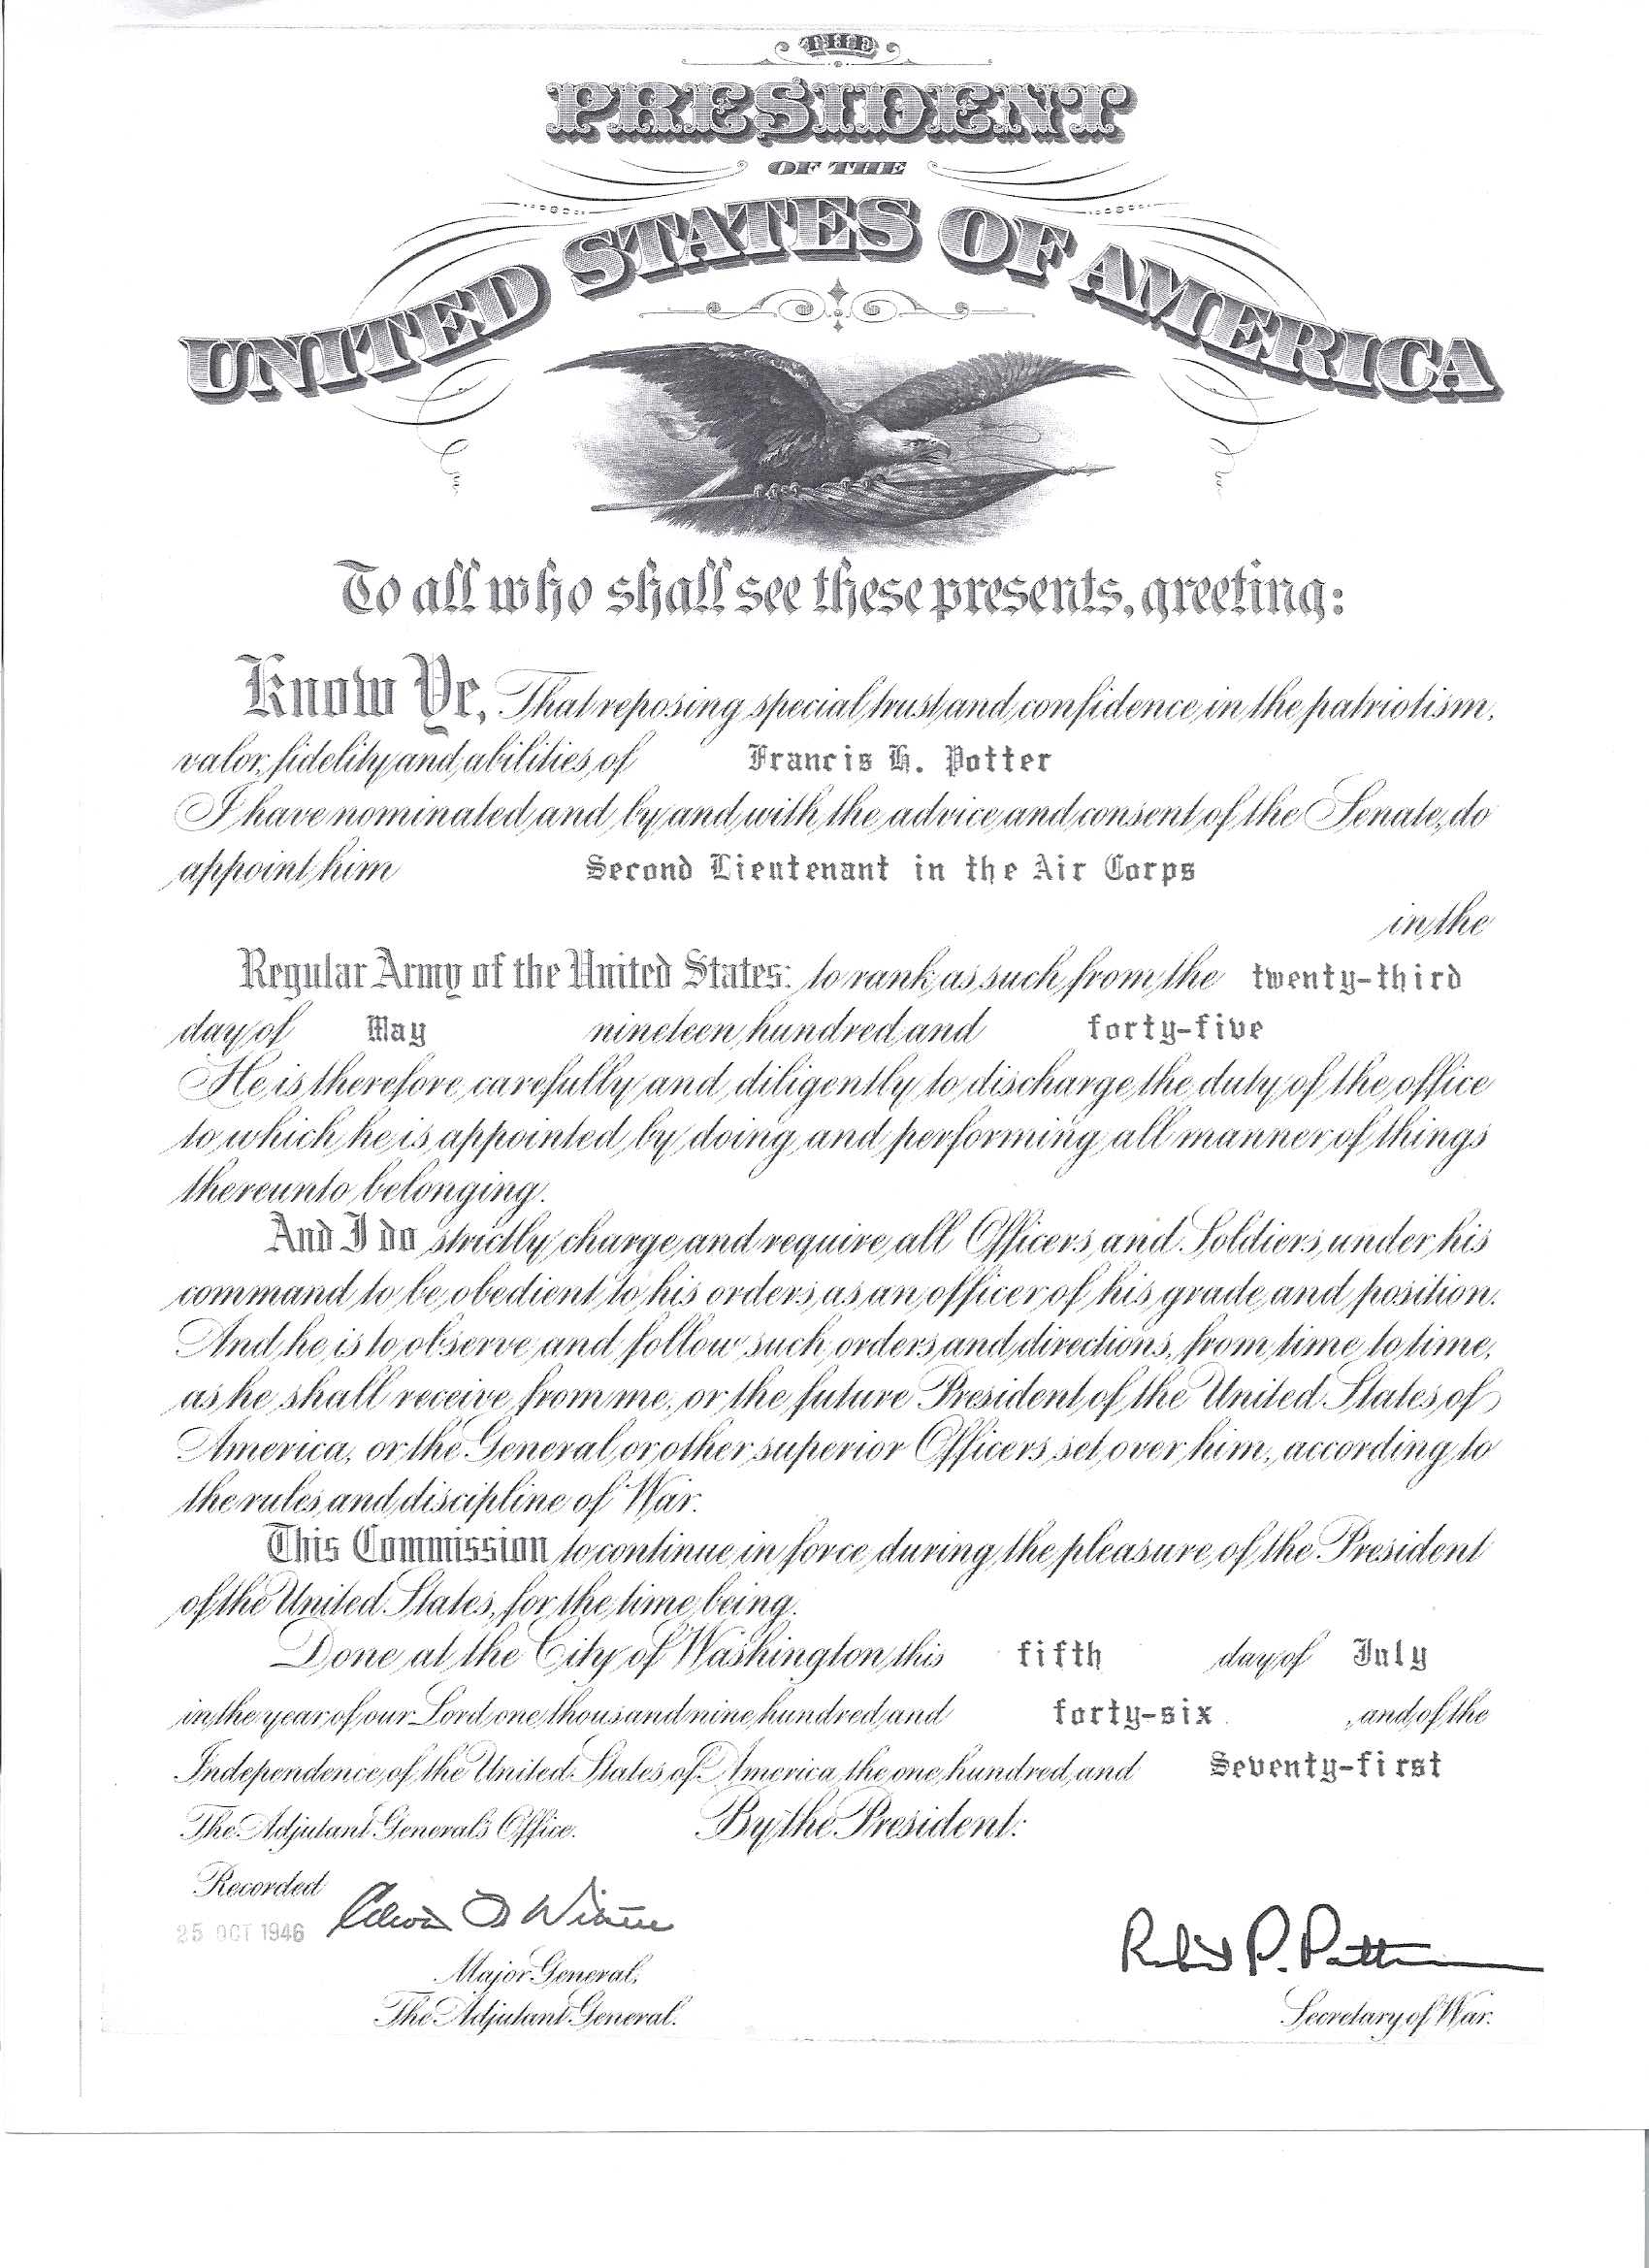 THE
PRESIDENT
OF THE
UNITED STATES OF AMERICA
To all who shall see these presents, greeting:
Know Ye, That reposing special trust and confidence in the patriotism,
valor, fidelity and abilities of Francis H. Potter
I have nominated and by and with the advice and consent of the Senate, do
appoint him Second Lieutenant in the Air Corps
in the
Regular Army of the United States: to rank as such from the twenty-third
day of May nineteen hundred and forty-five
He is therefore carefully and diligently to discharge the duty of the office
to which he is appointed by doing and performing all manner of things
thereunto belonging.
And I do strictly charge and require all Officers and Soldiers under his
command to be obedient to his orders as an officer of his grade and position.
And he is to observe and follow such orders and directions, from time to time,
as he shall receive from me, or the future President of the United States of
America, or the General or other superior Officers set over him, according to
the rules and discipline of War.
This Commission to continue in force during the pleasure of the President
of the United States, for the time being.
Done at the City of Washington this fifth day of July
in the year of our Lord one thousand nine hundred and forty-six, and of the
Independence of the United States of America the one hundred and Seventy-first
The Adjutant General's Office. By the President:
Recorded
25 OCT 1946
Robert P. Patterson
Major General,
The Adjutant General.
Secretary of War.